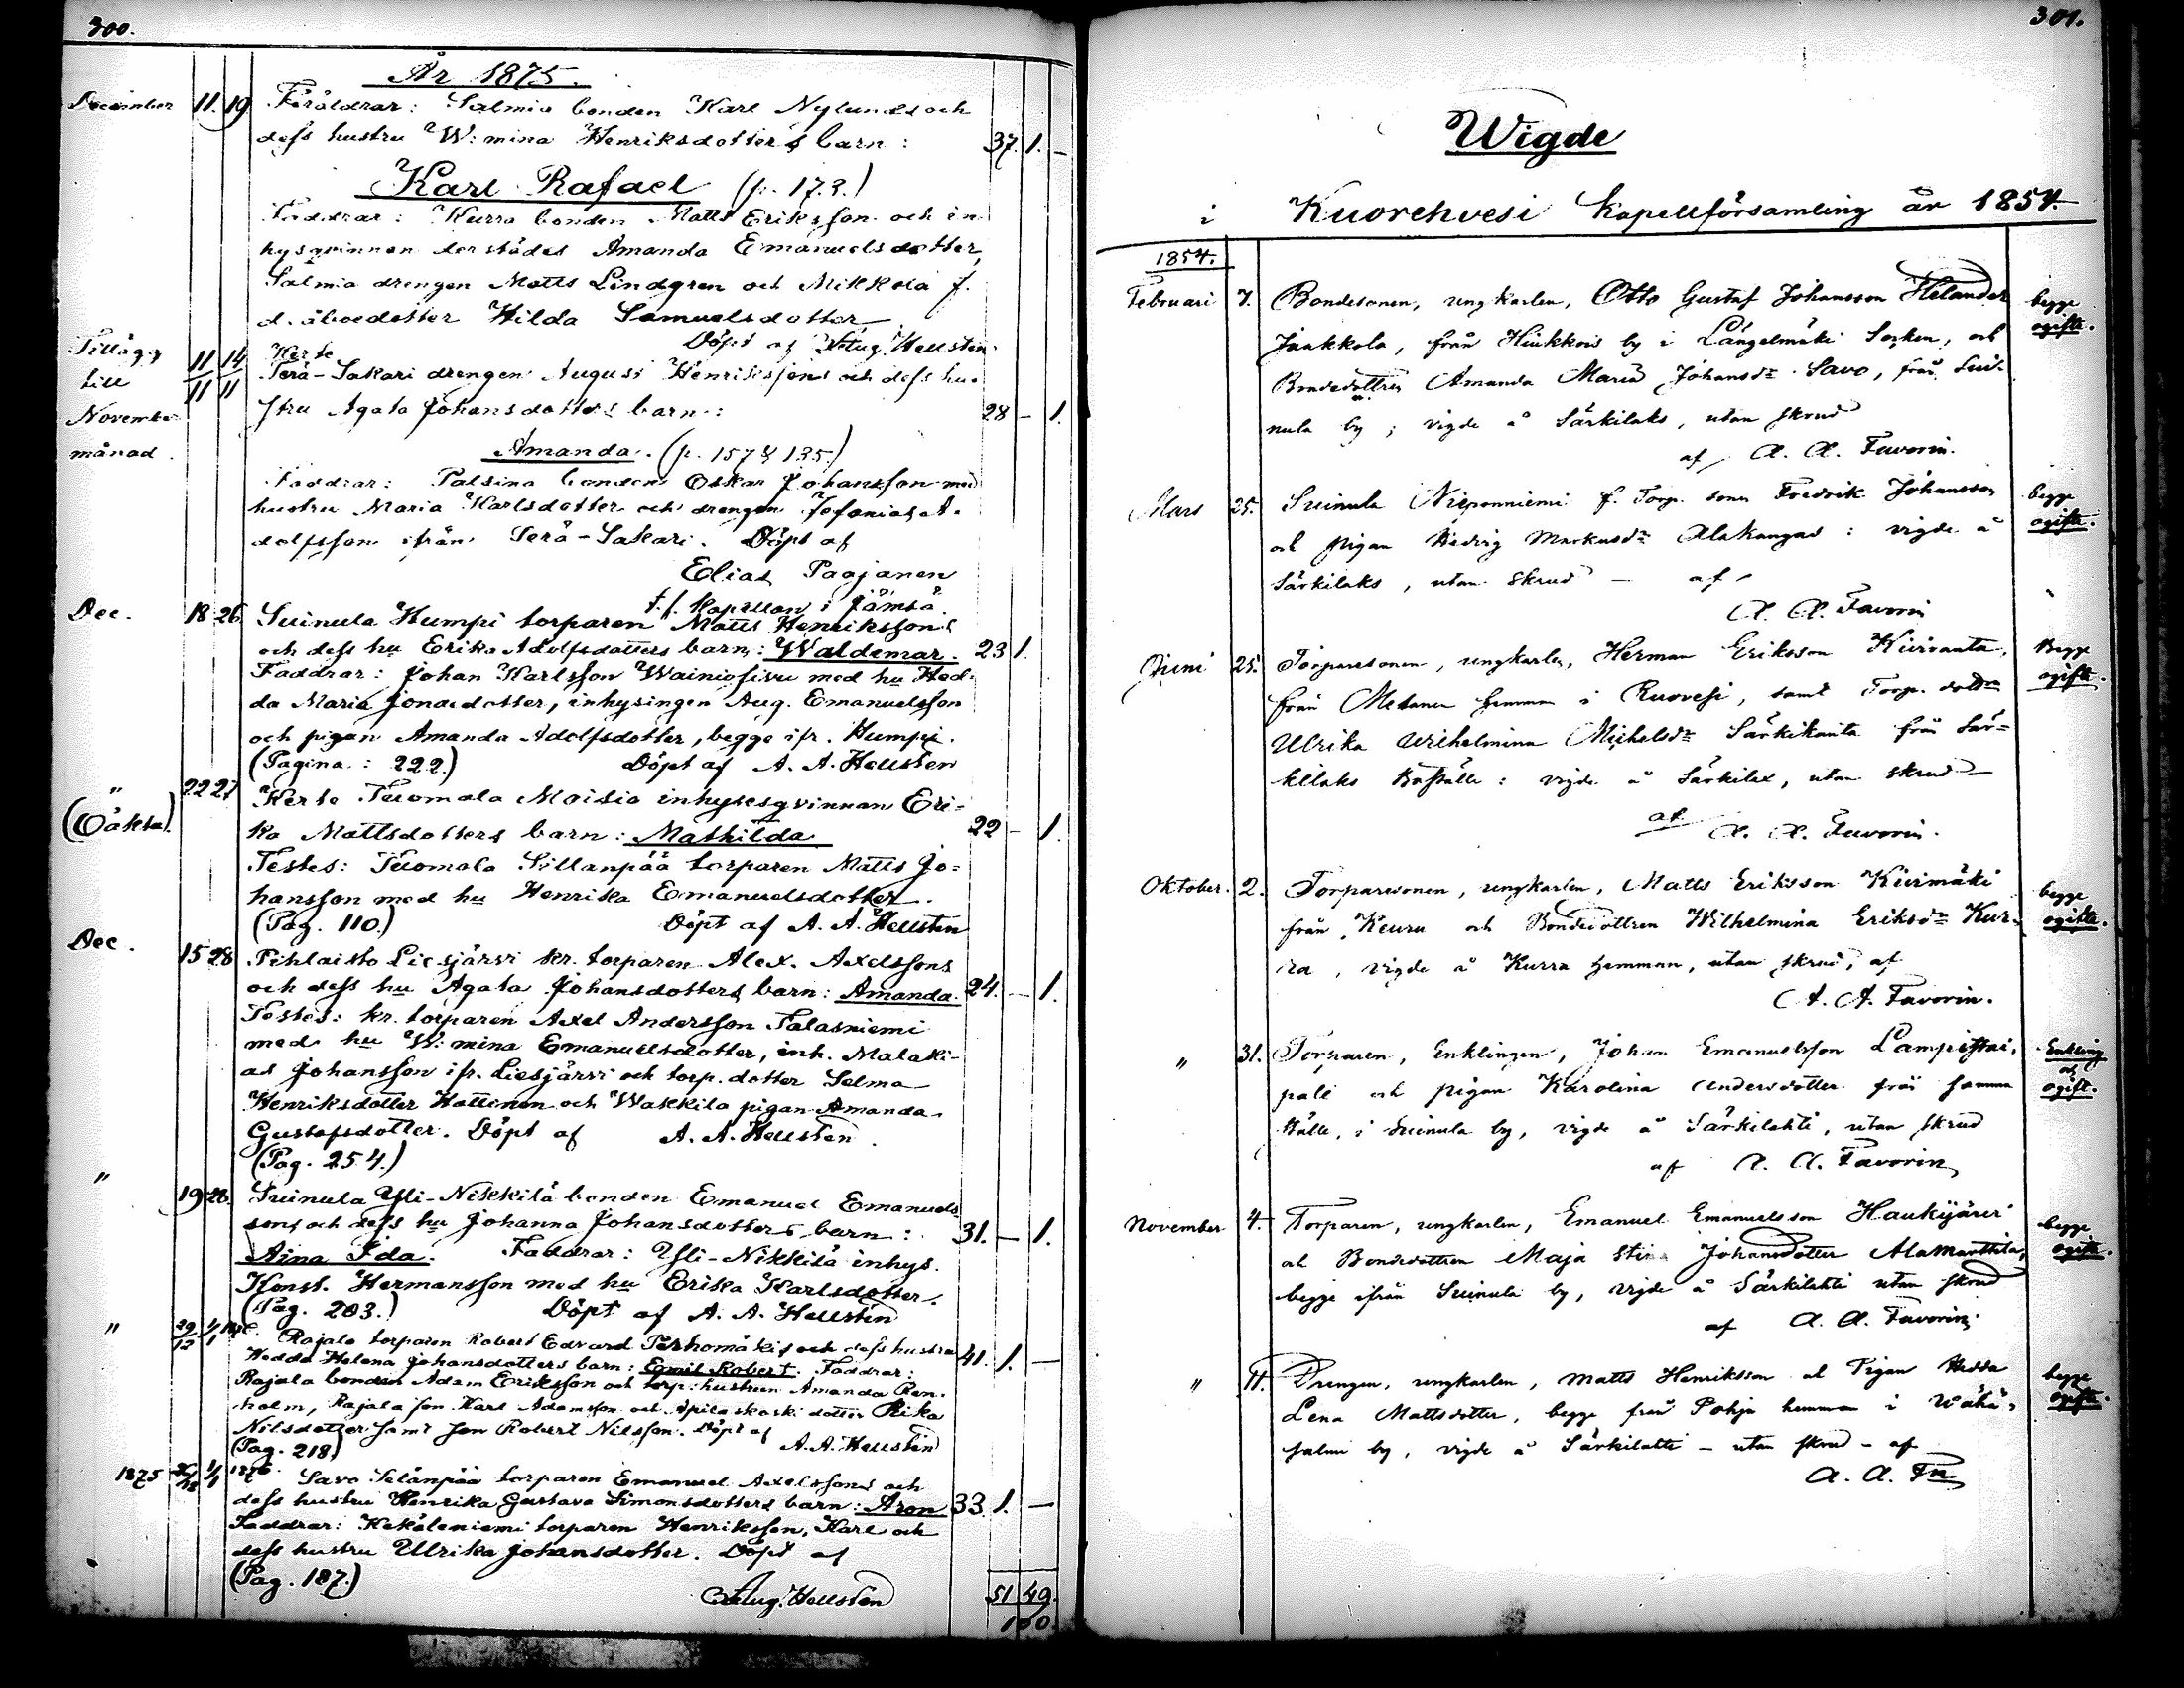 300.
År 1875.
December 11. 19 Föräldrar: Salmia bonden Karl Nylunds och
dess hustru W:mina Henriksdotters barn: 37. 1. –
Karl Rafael (p. 173.)
Faddrar: Kurra bonden Matts Eriksson och in-
hysqvinnan derstädes Amanda Emanuelsdotter,
Salmia drengen Matts Lindgren och Mikkola f.
d. åboedotter Hilda Samuelsdotter
Döpt af Aug. Hellsten
Tillägg till November månad. 11/11 14/11 Kerte
Terä-Sakari drengen August Henrikssons och dess hu-
stru Agata Johansdotters barn: 28 – 1.
Amanda. (p. 157 & 135.)
Faddrar: Palsina bonden Oskar Johansson med
hustru Maria Karlsdotter och drengen Jefonias A-
dolfsson ifrån Terä-Sakari. Döpt af
Elias Paajanen
t.f. kapellan i Jämsä.
Dec. 18 26 Suinula Humpi torparen Matts Henrikssons
och dess hu Erika Adolfsdotters barn: Waldemar. 23 1.
Faddrar: Johan Karlsson Wainiosivu med hu Hed-
da Maria Jonaedotter, inhysingen Aug. Emanuelsson
och pigan Amanda Adolfsdotter, begge ifr. Humpi.
(Pagina: 222.) Döpt af A. A. Hellsten
" (Oäkta). 22 27 Kerte Tuomala Moisio inhysesqvinnan Eri-
ka Mattsdotters barn: Mathilda 22 – 1.
Testes: Tuomala Sillanpää torparen Matts Jo-
hansson med hu Henrika Emanuelsdotter.
(Pag. 110.) Döpt af A. A. Hellsten
Dec. 15 28 Pihlaisto Liesjärvi kr. torparen Alex. Axelssons
och dess hu Agata Johansdotters barn: Amanda. 24. – 1.
Testes: kr. torparen Axel Andersson Talasniemi
med hu W:mina Emanuelsdotter, inh. Malaki-
as Johansson ifr. Liesjärvi och torp. dotter Selma
Henriksdotter Hattinen och Wakkila pigan Amanda
Gustafsdotter. Döpt af A. A. Hellsten.
(Pag. 254.)
" 19 28. Suinula Yli-Nikkilä bonden Emanuel Emanuels-
sons och dess hu Johanna Johansdotters barn: 31. – 1.
Aina Ida. Faddrar: Yli-Nikkilä inhys.
Konst. Hermansson med hu Erika Karlsdotter.
(Pag. 203.) Döpt af A. A. Hellsten
" 29/12 1/1 1876. Rajala torparen Robert Edvard Perhomäkis och dess hustru
Hedda Helena Johansdotters barn: Emil Robert. Faddrar: 41. 1. –
Rajala bonden Adam Eriksson och torp: hustrun Amanda Ren-
holm, Rajala son Karl Adamsson och dotter Rika
Nilsdotter samt son Robert Nilsson. Döpt af
(Pag. 218) A. A. Hellsten
1875 1/1 1876. Savo Selänpää torparen Emanuel Axelssons och
dess hustru Henrika Gustava Simonsdotters barn: Aron 33. 1. –
Faddrar: Kekäleniemi torparen Henriksson, Karl och
dess hustru Ulrika Johansdotter. Döpt af
(Pag. 187.) Aug. Hellsten 51 49.
100.
301.
Wigde
i Kuorehvesi Kapellförsamling år 1854.
1854.
Februari 7. Bondesonen, ungkarlen, Otto Gustaf Johansson Helander begge
Jaakkola, från Hiukkois by i Längelmäki Socken, och ogifte.
Bondedottren Amanda Maria Johansdr Savo, från Sui-
nula by; vigde å Särkilaks, utan skrud
af A. A. Favorin.
Mars 25. Suinula Niponniemi f. Torp. sonen Fredrik Johansson begge
och pigan Hedvig Markusdr Alakangas: vigde å ogifte.
Särkilaks, utan skrud – af
A. A. Favorin
Juni 25. Torparesonen, ungkarlen, Herman Eriksson Kiiranta, Begge
från Metanen hemman i Ruovesi, samt Torp. dottr ogifte.
Ulrika Wilhelmina Michelsdr Särkikanta från Sär-
kilaks Boställe: vigde å Särkilax, utan skrud
af A. A. Favorin.
Oktober. 2. Torparesonen, ungkarlen, Matts Eriksson Kivimäki begge
från Keuru och Bondedottren Wilhelmina Eriksdr Kur- ogifte.
ra, vigde å Kurra hemman, utan skrud, af
A. A. Favorin.
" 31. Torparen, Enklingen, Johan Emanuelsson Lampistai- Enkling
pale och pigan Karolina Andersdotter från samma och ogift.
ställe, i Suinula by, vigde å Särkilahti, utan skrud
af A. A. Favorin
November 4. Torparen, ungkarlen, Emanuel Emanuelsson Haukijärvi begge
och Bondedottren Maja Stina Johansdotter Alamarttila, ogifte.
begge ifrån Suinula by, vigde å Särkilahti utan skrud
af A. A. Favorin.
" 11. Drengen, ungkarlen, Matts Henriksson och Pigan Hedda begge
Lena Mattsdotter, begge från Pohja hemman i Wähä- ogifte.
salmi by, vigde å Särkilatti – utan skrud – af
A. A. Fn